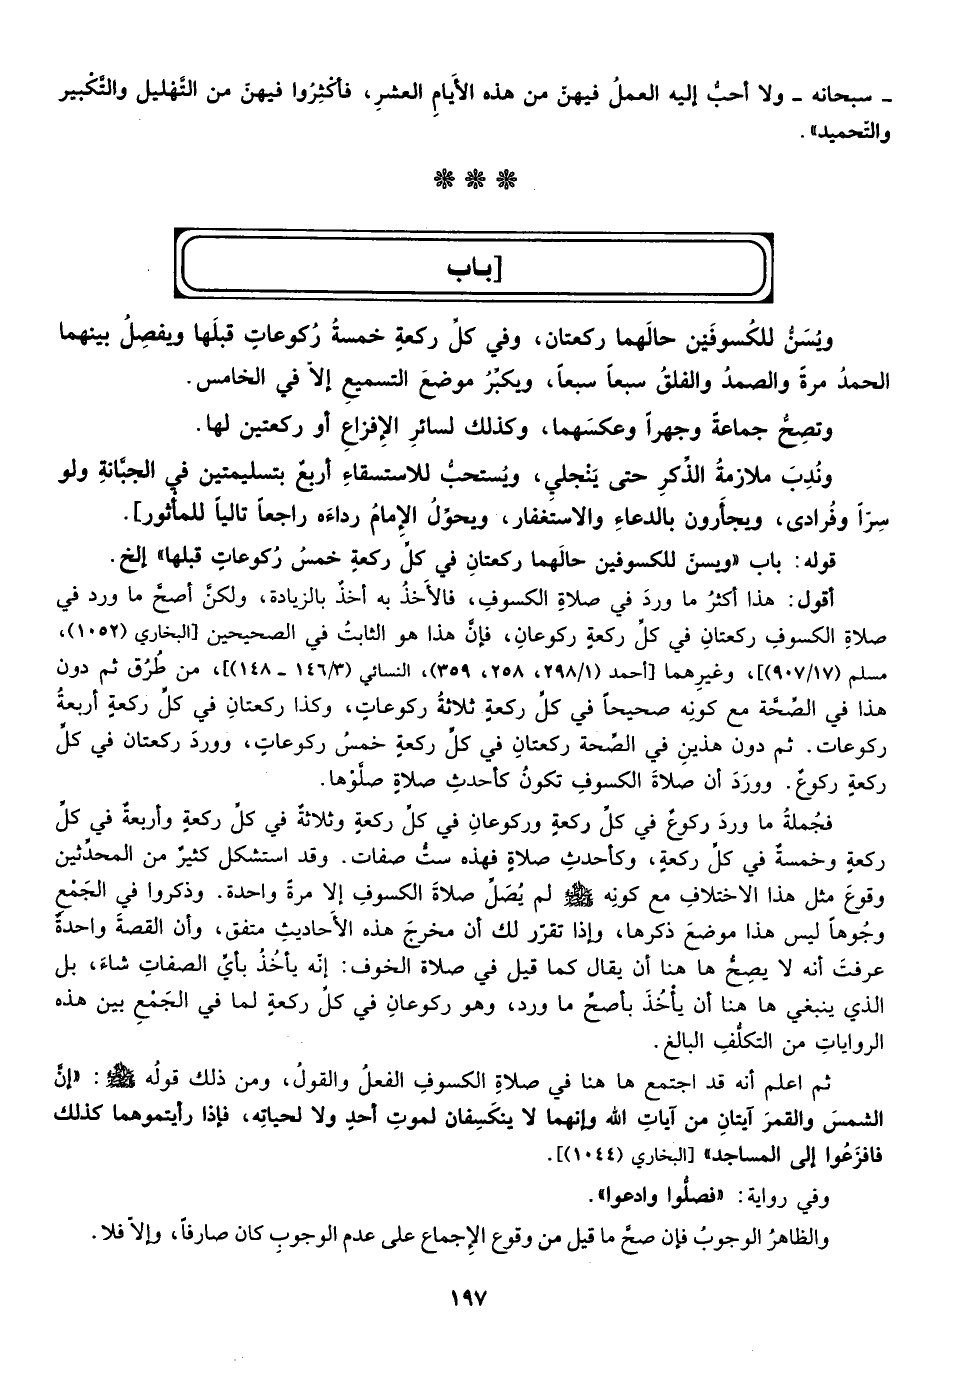 ـ سبحانه ـ ولا أحبُّ إليه العملُ فيهنّ من هذه الأَيامِ العشرِ، فأكْثِرُوا فيهنّ من التَّهْليل والتَّكْبير
والتّحميد».
❋ ❋ ❋
[باب
ويُسَنُّ للكُسوفَيْن حالَهما ركعتان، وفي كلِّ ركعةٍ خمسةُ رُكوعاتٍ قبلَها ويفصِلُ بينهما
الحمدُ مرةً والصمدُ والفلقُ سبعاً سبعاً، ويكبِّرُ موضعَ التسميعِ إلاّ في الخامس.
وتصِحُّ جماعةً وجهراً وعكسَهما، وكذلك لسائرِ الإفزاعِ أو ركعتين لها.
ونُدِبَ ملازمةُ الذِّكرِ حتى يَنْجلي، ويُستحبُّ للاستسقاءِ أربعٌ بتسليمتين في الجبَّانةِ ولو
سِرّاً وفُرادى، ويجأَرون بالدعاءِ والاستغفار، ويحوِّلُ الإمامُ رداءَه راجعاً تالياً للمأثور].
قوله: باب «ويسنّ للكسوفين حالَهما ركعتانِ في كلِّ ركعةٍ خمسُ رُكوعاتٍ قبلها» إلخ.
أقول: هذا أكثرُ ما وردَ في صلاةِ الكسوفِ، فالأَخذُ به أخذٌ بالزيادة، ولكنَّ أصحَّ ما ورد في
صلاةِ الكسوفِ ركعتانِ في كلِّ ركعةٍ ركوعان، فإنَّ هذا هو الثابتُ في الصحيحين [البخاري (١٠٥٢)،
مسلم (٩٠٧/١٧)]، وغيرِهما [أحمد (٢٩٨/١، ٢٥٨، ٣٥٩)، النسائي (١٤٦/٣ ـ ١٤٨)]، من طُرُق ثم دون
هذا في الصِّحَّة مع كونِه صحيحاً في كلِّ ركعةٍ ثلاثةُ ركوعاتٍ، وكذا ركعتانِ في كلِّ ركعةٍ أربعةُ
ركوعات. ثم دون هذينِ في الصِّحة ركعتانِ في كلِّ ركعةٍ خمسُ ركوعاتٍ، ووردَ ركعتان في كلِّ
ركعةٍ ركوعٌ. وورَدَ أن صلاةَ الكسوفِ تكونُ كأحدثِ صلاةٍ صلَّوْها.
فجُملةُ ما وردَ ركوعٌ في كلِّ ركعةٍ وركوعانِ في كلِّ ركعةٍ وثلاثةٌ في كلِّ ركعةٍ وأربعةٌ في كلِّ
ركعةٍ وخمسةٌ في كلِّ ركعةٍ، وكأحدثِ صلاةٍ فهذه ستُّ صفات. وقد استشكل كثيرٌ من المحدِّثين
وقوعَ مثل هذا الاختلافِ مع كونِه ﷺ لم يُصَلِّ صلاةَ الكسوف إلا مرةً واحدة. وذكروا في الجَمْعِ
وجُوهاً ليس هذا موضعَ ذكرها، وإذا تقرّر لك أن مخرجَ هذه الأَحاديثِ متفق، وأن القصةَ واحدةٌ
عرفتَ أنه لا يصِحُّ ها هنا أن يقال كما قيل في صلاة الخوف: إنّه يأخُذُ بأيِّ الصفاتِ شاءَ، بل
الذي ينبغي ها هنا أن يأْخُذَ بأصحِّ ما ورد، وهو ركوعانِ في كلِّ ركعةٍ لما في الجَمْعِ بين هذه
الرواياتِ من التكلُّفِ البالغ.
ثم اعلم أنه قد اجتمع ها هنا في صلاةِ الكسوفِ الفعلُ والقولُ، ومن ذلك قولُه ﷺ: «إنَّ
الشمسَ والقمرَ آيتانِ من آياتِ الله وإنهما لا ينكَسِفان لموتِ أحدٍ ولا لحياتِه، فإذا رأيتموهما كذلك
فافزَعُوا إلى المساجد» [البخاري (١٠٤٤)].
وفي رواية: «فصلُّوا وادعوا».
والظاهرُ الوجوبُ فإن صحَّ ما قيل من وقوع الإجماع على عدم الوجوبِ كان صارفاً، وإلاّ فلا.
١٩٧